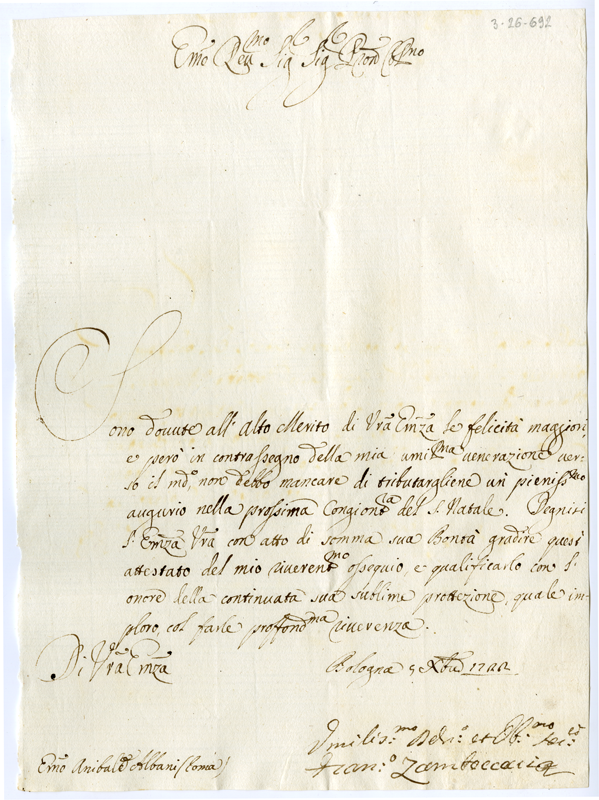 3-26-692
Emo Revmo Sig Sig Pron Colmo
Sono dovute all' Alto Merito di Vra Emza le felicità maggiori,
e però in contrassegno della mia umilma venerazione ver-
so il mdo, non debbo mancare di tributargliene un pienissmo
augurio nella prossima Congiontra del S. Natale. Degnisi
l' Emza Vra con atto di somma sua Bontà gradire quest
attestato del mio riverentmo ossequio, e qualificarlo con l'
onore della continuata sua sublime protezione, quale im-
ploro, col farle profondma riverenza.
Di Vra Emza
Bologna 5 Xbre 1722
Umiliss.mo Devo. et Obb.mo
Fran.o Zambeccari
Emo Anibale Albani (Roma)